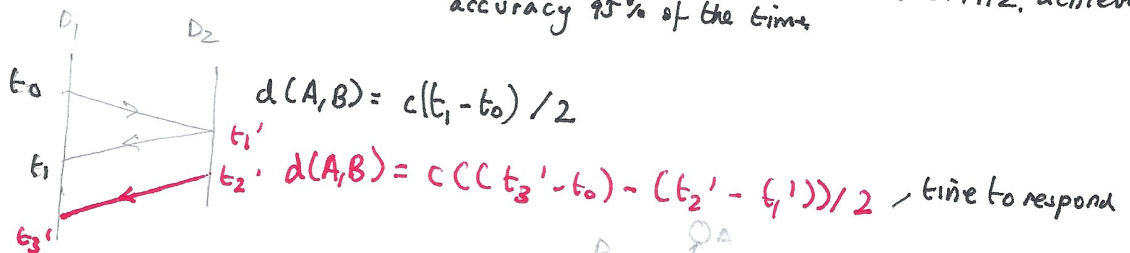 accuracy 95% of the time
D₁ D₂
t₀
d(A,B) = c(t₁ - t₀)/2
t₁'
t₁
t₂' d(A,B) = c((t₃' - t₀) - (t₂' - t₁'))/2 , time to respond
t₃'
A